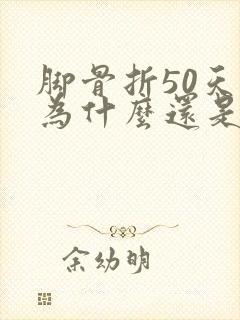 脚骨折50天
為什麼還是
余幼明